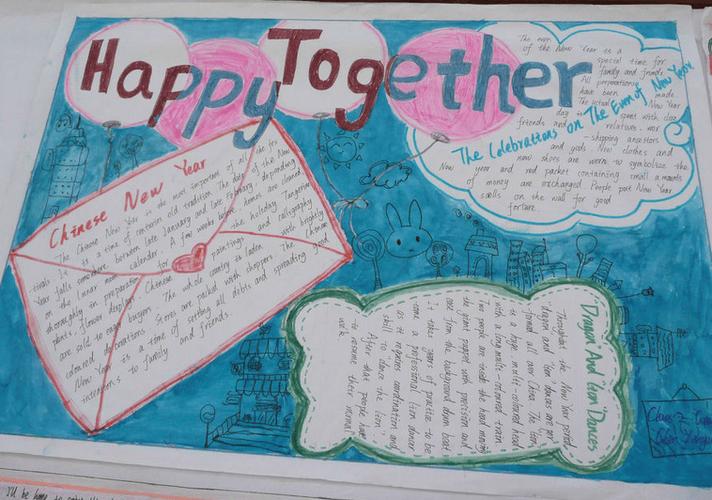 Happy Together
Chinese New Year
The Chinese New Year is the most important of all the
It is a time of
Year falls somewhere between late January and late February, depending
on the lunar calender. A few weeks before homes are cleaned
thoroughly in preparation for the holiday. Tangerine
plants, flower displays Chinese paintings and calligraphy
are sold to eager buyers. The whole country is laden with brightly
colored decorations. Stores are packed with shoppers. The Chinese
New Year is a time of setting all debts and spreading good
intentions to family and friends.
The Celebrations on The Even of New Years
The even
of the New Year is a
special time for
family and friends
All preparations
have been made.
The actual New Year
day is spent with close
friends and relatives, wor
-shipping ancestors
and gods. New clothes and
new shoes are worn to symbolize the
New year and red packet containing small amounts
of money are exchanged. People post New Year
on the wall for good
fortune.
Dragon And "Lion" Dances
Throughout the New Year period,
"dragon and lion" dances are per
-formed all over China. The lion
is a huge, multi-coloured head
with a long multi-coloured train.
Two people are inside the
the giant puppet with precision and
from the background drum beat
It takes years of practice to be
-come a professional lion dancer
as it requires coordination and
skill to dance the lion.
After that people have
to resume their normal
work
Class 2
I'll be home